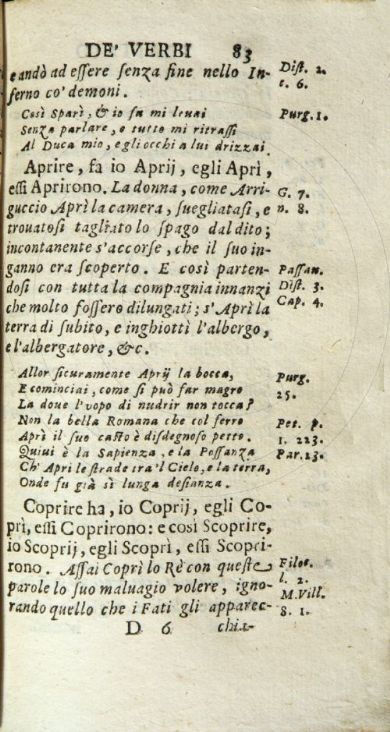 DE' VERBI 83
e andò ad essere senza fine nello In- Dist. 2.
ferno co' demoni. c. 6.
Così Sparì, & io sa mi leuai Purg. 1.
Senza parlare, e tutto mi ritrassi
Al Duca mio, e gli occhi a lui drizzai
Aprire, fa io Aprij, egli Aprì,
essi Aprirono. La donna, come Arri- G. 7.
guccio Aprì la camera, suegliatasi, e n. 8.
trouatosi tagliato lo spago dal dito;
incontanente s'accorse, che il suo in-
ganno era scoperto. E così parten- Passau.
dosi con tutta la compagnia innanzi Dist. 3.
che molto fossero dilungati; s'Aprì la Cap. 4.
terra di subito, e inghiottì l'albergo,
e l'albergatore, &c.
Allor sicuramente Aprij la bocca, Purg.
E cominciai, come si può far magro 25.
La doue l'vopo di nudrir non tocca?
Non la bella Romana che col ferro Pet. p.
Aprì il suo casto è disdegnoso petto. 1. 223.
Quiui è la Sapienza, e la Possanza Par. 23.
Ch'Aprì le strade tra'l Cielo, e la terra,
Onde fu già sì lunga desianza.
Coprire ha, io Coprij, egli Co-
prì, essi Coprirono: e così Scoprire,
io Scoprij, egli Scoprì, essi Scopri-
rono. Assai Coprì lo Rè con queste Filoc.
parole lo suo maluagio volere, igno- l. 2.
rando quello che i Fati gli apparec- M. Vill. 8. 1.
D 6 chia-